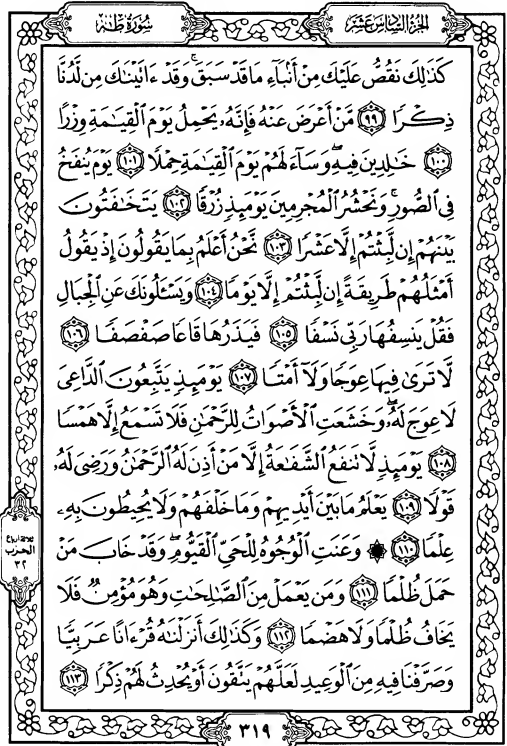 سُورَةُ طه
الجُزْءُ السَّادِسَ عَشَرَ
كَذَٰلِكَ نَقُصُّ عَلَيْكَ مِنْ أَنۢبَآءِ مَا قَدْ سَبَقَ ۚ وَقَدْ ءَاتَيْنَٰكَ مِن لَّدُنَّا
ذِكْرًا ٩٩ مَّنْ أَعْرَضَ عَنْهُ فَإِنَّهُۥ يَحْمِلُ يَوْمَ ٱلْقِيَٰمَةِ وِزْرًا
١٠٠ خَٰلِدِينَ فِيهِ ۖ وَسَآءَ لَهُمْ يَوْمَ ٱلْقِيَٰمَةِ حِمْلًا ١٠١ يَوْمَ يُنفَخُ
فِى ٱلصُّورِ ۚ وَنَحْشُرُ ٱلْمُجْرِمِينَ يَوْمَئِذٍ زُرْقًا ١٠٢ يَتَخَٰفَتُونَ
بَيْنَهُمْ إِن لَّبِثْتُمْ إِلَّا عَشْرًا ١٠٣ نَّحْنُ أَعْلَمُ بِمَا يَقُولُونَ إِذْ يَقُولُ
أَمْثَلُهُمْ طَرِيقَةً إِن لَّبِثْتُمْ إِلَّا يَوْمًا ١٠٤ وَيَسْـَٔلُونَكَ عَنِ ٱلْجِبَالِ
فَقُلْ يَنسِفُهَا رَبِّى نَسْفًا ١٠٥ فَيَذَرُهَا قَاعًا صَفْصَفًا ١٠٦
لَّا تَرَىٰ فِيهَا عِوَجًا وَلَآ أَمْتًا ١٠٧ يَوْمَئِذٍ يَتَّبِعُونَ ٱلدَّاعِىَ
لَا عِوَجَ لَهُۥ ۖ وَخَشَعَتِ ٱلْأَصْوَاتُ لِلرَّحْمَٰنِ فَلَا تَسْمَعُ إِلَّا هَمْسًا
١٠٨ يَوْمَئِذٍ لَّا تَنفَعُ ٱلشَّفَٰعَةُ إِلَّا مَنْ أَذِنَ لَهُ ٱلرَّحْمَٰنُ وَرَضِىَ لَهُۥ
قَوْلًا ١٠٩ يَعْلَمُ مَا بَيْنَ أَيْدِيهِمْ وَمَا خَلْفَهُمْ وَلَا يُحِيطُونَ بِهِۦ
عِلْمًا ١١٠ ۞ وَعَنَتِ ٱلْوُجُوهُ لِلْحَىِّ ٱلْقَيُّومِ ۖ وَقَدْ خَابَ مَنْ
حَمَلَ ظُلْمًا ١١١ وَمَن يَعْمَلْ مِنَ ٱلصَّٰلِحَٰتِ وَهُوَ مُؤْمِنٌ فَلَا
يَخَافُ ظُلْمًا وَلَا هَضْمًا ١١٢ وَكَذَٰلِكَ أَنزَلْنَٰهُ قُرْءَانًا عَرَبِيًّا
وَصَرَّفْنَا فِيهِ مِنَ ٱلْوَعِيدِ لَعَلَّهُمْ يَتَّقُونَ أَوْ يُحْدِثُ لَهُمْ ذِكْرًا ١١٣
ثلاثة أرباع
الحزب
٣٢
٣١٩